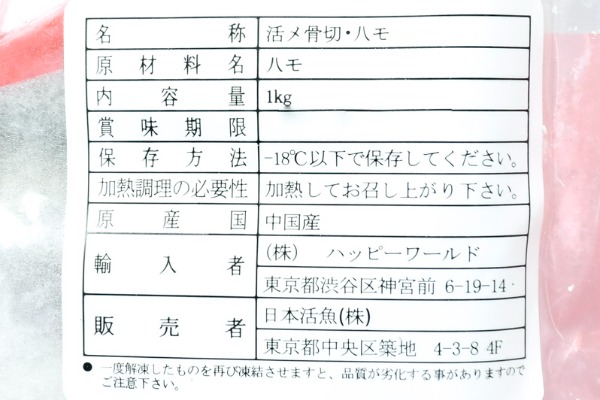 名称 活〆骨切・ハモ
原材料名 ハモ
内容量 1kg
賞味期限
保存方法 -18℃以下で保存してください。
加熱調理の必要性 加熱してお召し上がり下さい。
原産国 中国産
輸入者 (株) ハッピーワールド
東京都渋谷区神宮前 6-19-14
販売者 日本活魚(株)
東京都中央区築地 4-3-8 4F
● 一度解凍したものを再び凍結させますと、品質が劣化する事がありますので
ご注意下さい。